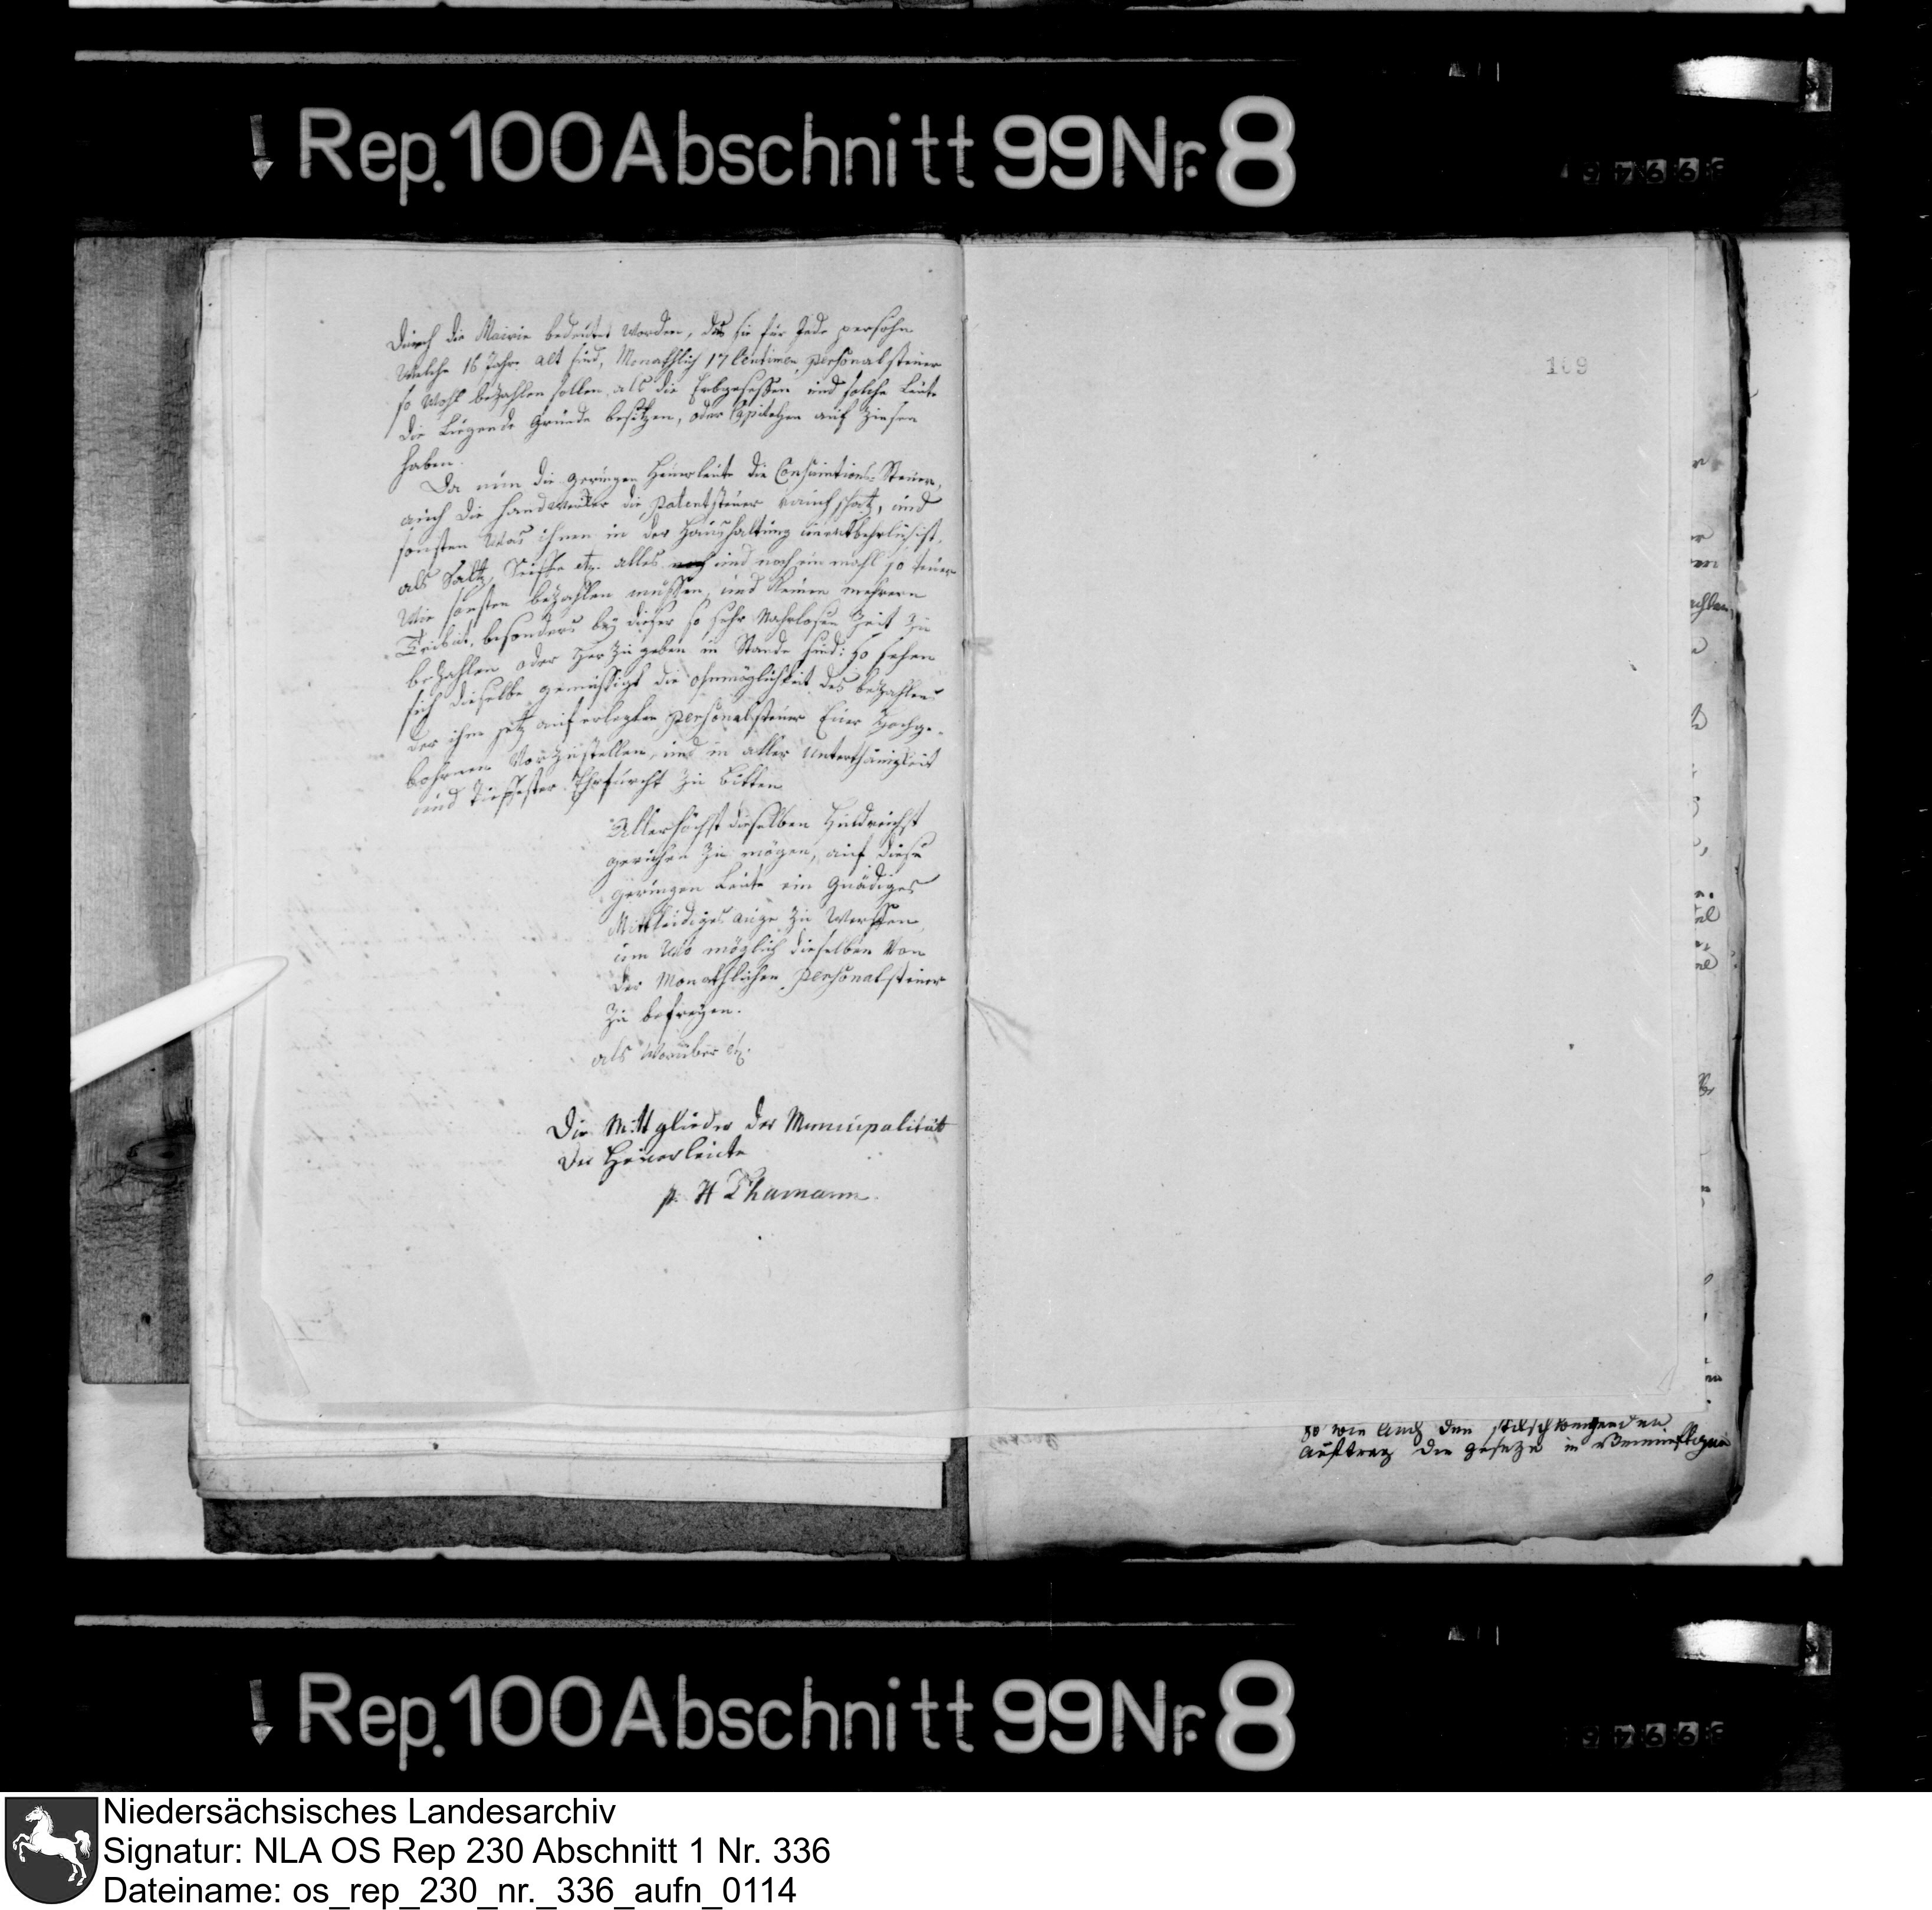 Rep. 100 Abschnitt 99 Nr. 8
durch die Mairie bedeutet worden, das sie für Jede persohn
welche 16 Jahre alt sind, Monathlich 17 Centimen, personalsteuer
so wohl bezahlen sollen, als die Erbgesessen und solche Leute
die Liegende Gründe besitzen, oder Capitalien auf Zinsen
haben.
Da nun die geringen Heuerleute die Consumtions-Steuer,
auch die Handwerker die patentsteuer rauchschatz, und
sonsten was ihnen in der Haushaltung unentbehrlich ist,
als Saltz, Seiffe etz. alles und noch ein mahl so teuer
wie sonsten bezahlen müssen, und keinen mehrern
Tribut, besonders bey dieser so sehr Nahrlosen Zeit zu
bezahlen oder herzugeben in Stande sind: so sehen
sich dieselbe gemüssigt die ohnmöglichkeit des bezahlens
der ihm jetz auferlegten personalsteuer Euer Hochge-
bohrnen vorzustellen, und in aller Unterthänigkeit
und tieffester Ehrfurcht zu bitten
Allerhöchst dieselben Huldreichst
geruhen zu mögen, auf diese
geringen Leute ein Gnädiges
Mittleidiges auge zu werffen,
um wo möglich dieselben von
der Monathlichen personalsteuer
zu befreyen.
als worüber etz.
Die Mittglieder der Municipalität
der Heuerleute
p. H Thamann
109
so wie auch den stilschweigenden
auftrag die gesetze in
Rep. 100 Abschnitt 99 Nr. 8
Niedersächsisches Landesarchiv
Signatur: NLA OS Rep 230 Abschnitt 1 Nr. 336
Dateiname: os_rep_230_nr._336_aufn_0114